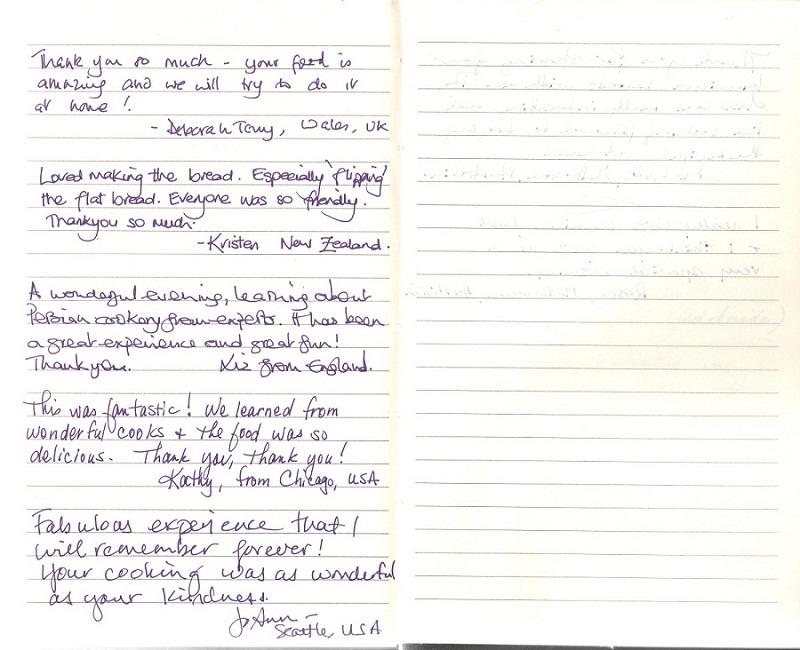 Thank you so much - your food is
amazing and we will try to do it
at home!
- Deborah Terry, Wales, UK
Loved making the bread. Especially 'flipping'
the flat bread. Everyone was so friendly.
Thankyou so much.
- Kristen New Zealand.
A wonderful evening, learning about
Persian cookery from experts. It has been
a great experience and great fun!
Thank you. Liz from England.
This was fantastic! We learned from
wonderful cooks + the food was so
delicious. Thank you, thank you!
Kathy, from Chicago, USA
Fabulous experience that I
will remember forever!
Your cooking was as wonderful
as your kindness.
JoAnn -
Seattle, USA